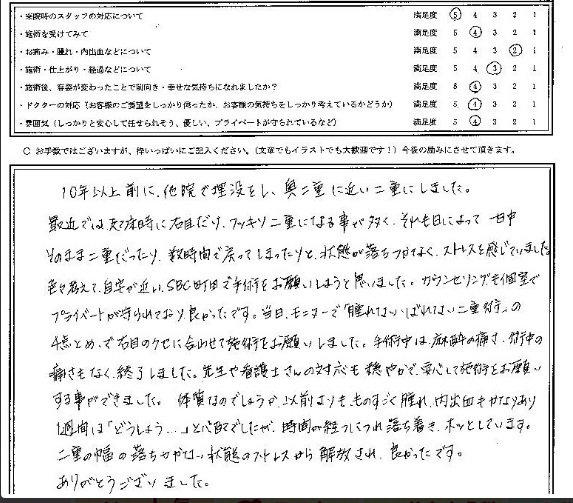 ・来院時のスタッフの対応について 満足度 5 4 3 2 1
・施術を受けてみて 満足度 5 4 3 2 1
・お痛み・腫れ・内出血などについて 満足度 5 4 3 2 1
・施術・仕上がり・経過などについて 満足度 5 4 3 2 1
・施術後、容姿が変わったことで前向き・幸せな気持ちになれましたか? 満足度 5 4 3 2 1
・ドクターの対応(お客様のご要望をしっかり伺ったか、お客様の気持ちをしっかり考えているかどうか) 満足度 5 4 3 2 1
・雰囲気(しっかりと安心して任せられそう、優しい、プライベートが守られているなど) 満足度 5 4 3 2 1
○ お手数ではございますが、枠いっぱいにご記入ください。(文章でもイラストでも大歓迎です!)今後の励みにさせて頂きます。
10年以上前に、他院で埋没をし、奥二重に近い二重にしました。
最近では起床時に右目だけ、クッキリ二重になる事が多く、それも日によって一日中
そのまま二重だったり、数時間で戻ってしまったりと、状態が落ちつかなく、ストレスを感じていました。
色々考えて、自宅が近い、SBC町田で手術をお願いしようと思いました。カウンセリングも個室で
プライベートが守られており良かったです。当日、モニターで「腫れないばれない二重術」の
4点どめ、で右目のクセに合わせて施術をお願いしました。手術中は、麻酔の痛さ、術中の
痛さもなく、終了しました。先生や看護士さんの対応も穏やかで、安心して施術をお願い
する事ができました。体質なのでしょうか、以前よりも、ものすごく腫れ、内出血もかなりあり
1週間は「どうしよう…」と心配でしたが、時間が経つにつれ落ち着き、ホッとしています。
二重の幅の落ちつかない状態のストレスから解放され、良かったです。
ありがとうございました。